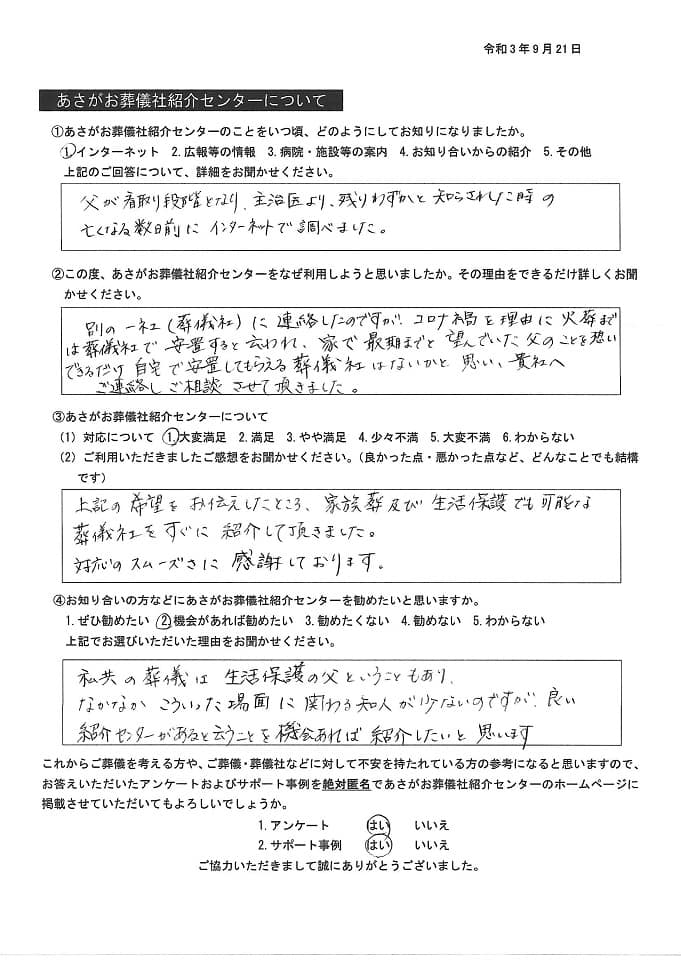 令和3年9月21日
あさがお葬儀社紹介センターについて
①あさがお葬儀社紹介センターのことをいつ頃、どのようにしてお知りになりましたか。
1.インターネット 2.広報等の情報 3.病院・施設等の案内 4.お知り合いからの紹介 5.その他
上記のご回答について、詳細をお聞かせください。
父が看取り段階となり、主治医より、残りわずかと知らされた時の
亡くなる数日前にインターネットで調べました。
②この度、あさがお葬儀社紹介センターをなぜ利用しようと思いましたか。その理由をできるだけ詳しくお聞
かせください。
別の一社(葬儀社)に連絡したのですが、コロナ禍を理由に火葬まで
は葬儀社で安置すると云われ、家で最期までと望んでいた父のことを想い
できるだけ自宅で安置してもらえる葬儀社はないかと思い、貴社へ
ご連絡しご相談させて頂きました。
③あさがお葬儀社紹介センターについて
(1) 対応について 1.大変満足 2.満足 3.やや満足 4.少々不満 5.大変不満 6.わからない
(2) ご利用いただきましたご感想をお聞かせください。(良かった点・悪かった点など、どんなことでも結構
です)
上記の希望をお伝えしたところ、家族葬及び生活保護でも可能な
葬儀社をすぐに紹介して頂きました。
対応のスムーズさに感謝しております。
④お知り合いの方などにあさがお葬儀社紹介センターを勧めたいと思いますか。
1.ぜひ勧めたい 2.機会があれば勧めたい 3.勧めたくない 4.勧めない 5.わからない
上記でお選びいただいた理由をお聞かせください。
私共の葬儀は生活保護の父ということもあり、
なかなかこういった場面に関わる知人が少ないのですが、良い
紹介センターがあると云うことを機会あれば紹介したいと思います
これからご葬儀を考える方や、ご葬儀・葬儀社などに対して不安を持たれている方の参考になると思いますので、
お答えいただいたアンケートおよびサポート事例を絶対匿名であさがお葬儀社紹介センターのホームページに
掲載させていただいてもよろしいでしょうか。
1.アンケート はい いいえ
2.サポート事例 はい いいえ
ご協力いただきまして誠にありがとうございました。